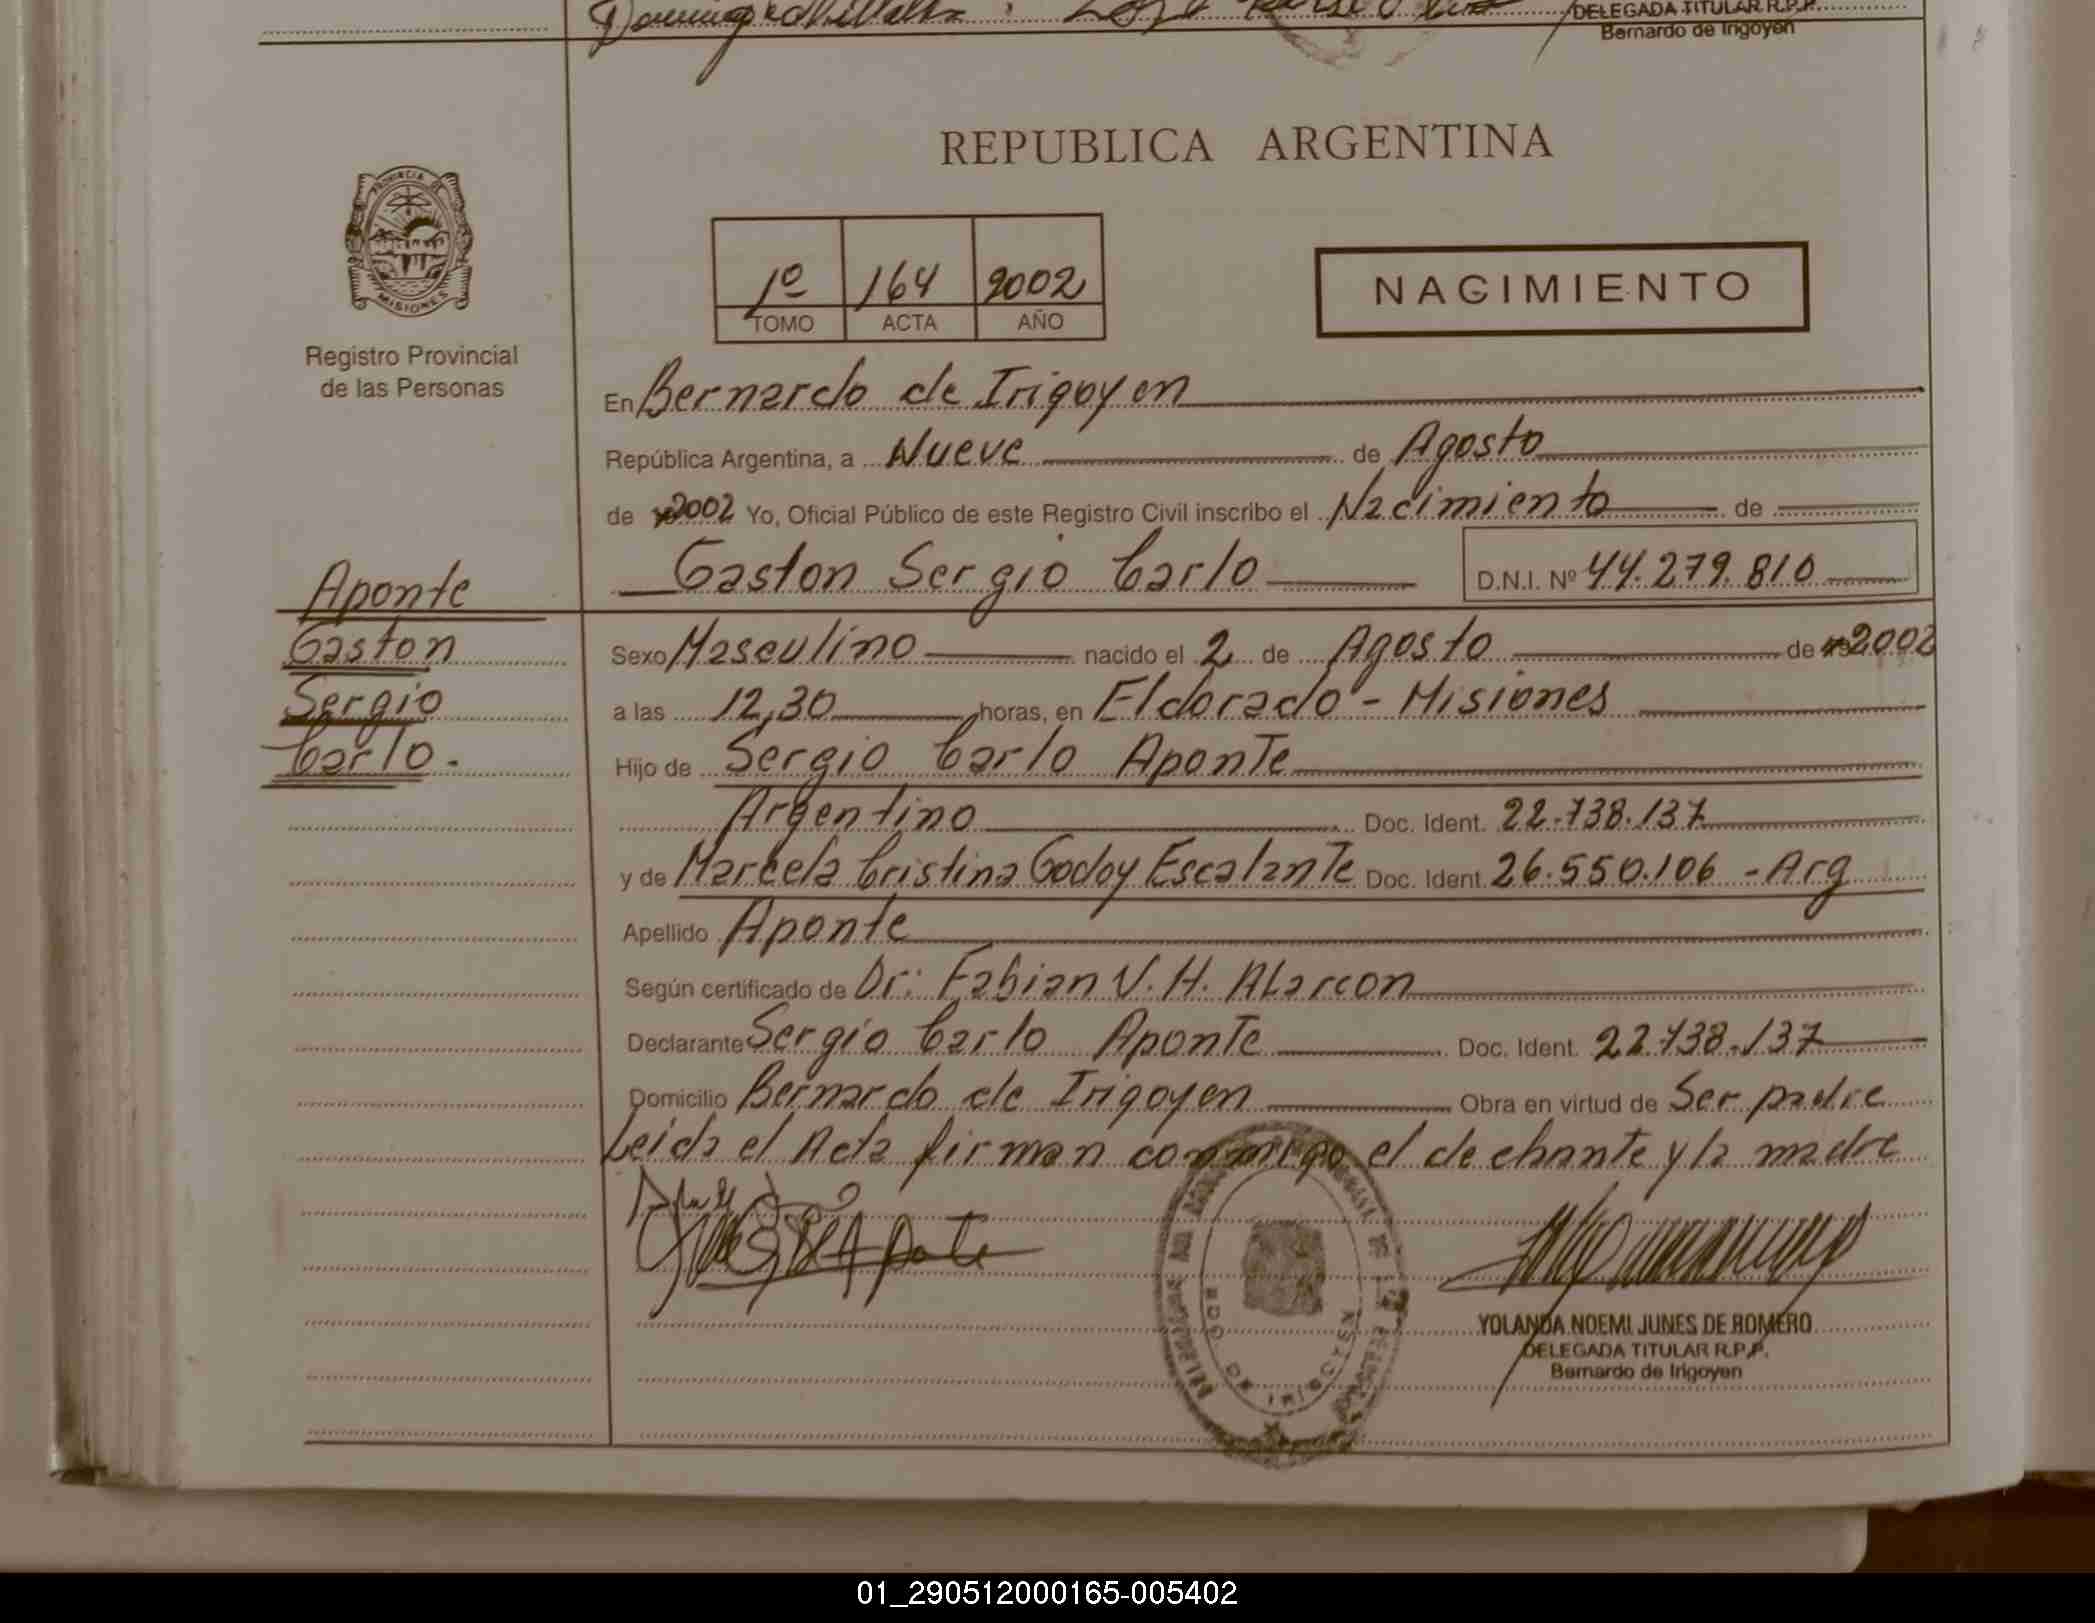 DELEGADA TITULAR R.P.P.
Bernardo de Irigoyen
REPUBLICA ARGENTINA
PROVINCIA DE
MISIONES
Registro Provincial
de las Personas
1º 164 2002
TOMO ACTA AÑO
NACIMIENTO
En Bernardo de Irigoyen
República Argentina, a Nueve de Agosto
de 2002 Yo, Oficial Público de este Registro Civil inscribo el Nacimiento de
Gaston Sergio Carlo D.N.I. Nº 44.279.810
Aponte
Gaston
Sergio
Carlo.
Sexo Masculino nacido el 2 de Agosto de 2002
a las 12,30 horas, en Eldorado - Misiones
Hijo de Sergio Carlo Aponte
Argentino Doc. Ident. 22.738.137
y de Marcela Cristina Godoy Escalante Doc. Ident. 26.550.106 - Arg
Apellido Aponte
Según certificado de Dr: Fabian V. H. Alarcon
Declarante Sergio Carlo Aponte Doc. Ident. 22.738.137
Domicilio Bernardo de Irigoyen Obra en virtud de Ser padre
Leida el Acta firman conmigo el declarante y la madre
Aponte
YOLANDA NOEMI JUNES DE ROMERO
DELEGADA TITULAR R.P.P.
Bernardo de Irigoyen
BDO. DE IRIGOYEN
01_290512000165-005402